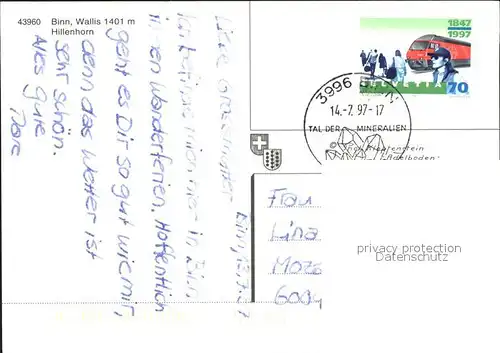 43960 Binn, Wallis 1401 m
Hillenhorn
Binn, 13.7.97
Liebe Grossmutter
Ich befinde mich hier in Binn
in den Wanderferien. Hoffentlich
geht es Dir so gut wie mir,
denn das Wetter ist
sehr schön.
Alles gute
1847
1997
HELVETIA 70
3996 BINN
14.-7.97-17
TAL DER MINERALIEN
Adelboden
Frau
Lina
6004
privacy protection
Datenschutz